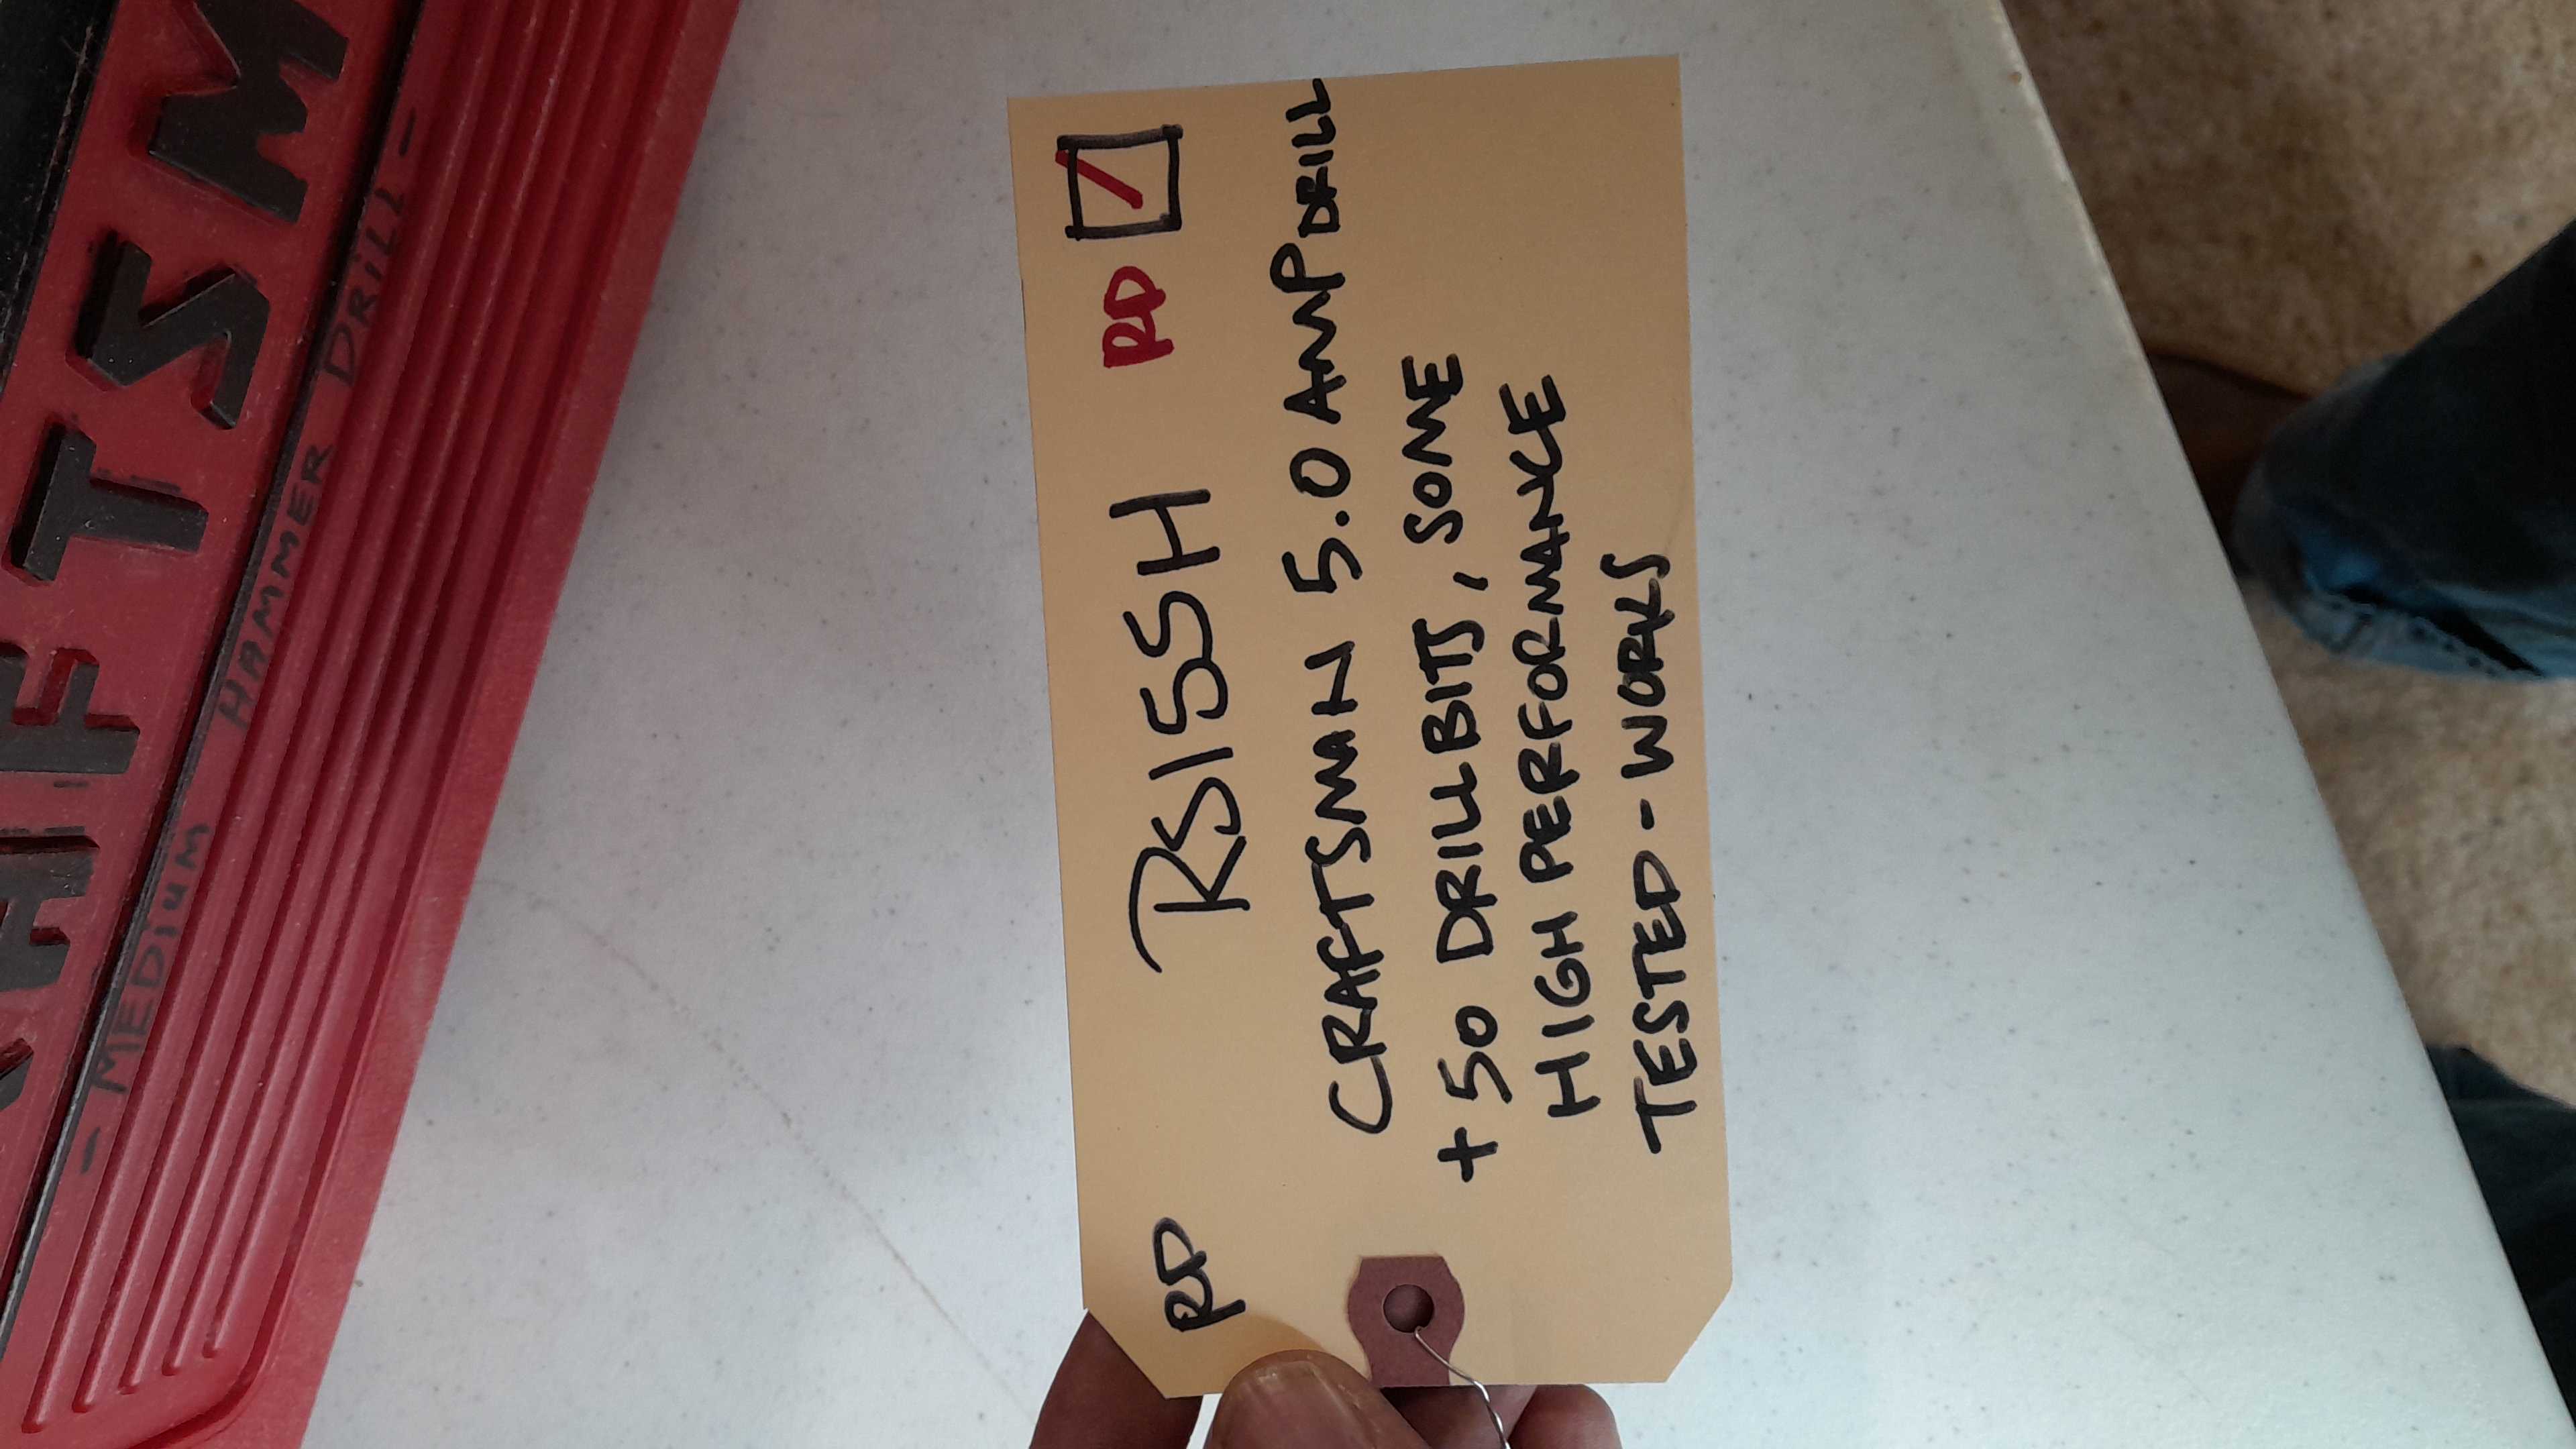 RAFTSM
- MEDiUM HAMMER DRiLL -
RD RS155H RD
CRAFTSMAN 5.0 AMP DRILL
+ 50 DRILL BITS, SOME
HIGH PERFORMANCE
TESTED - WORKS